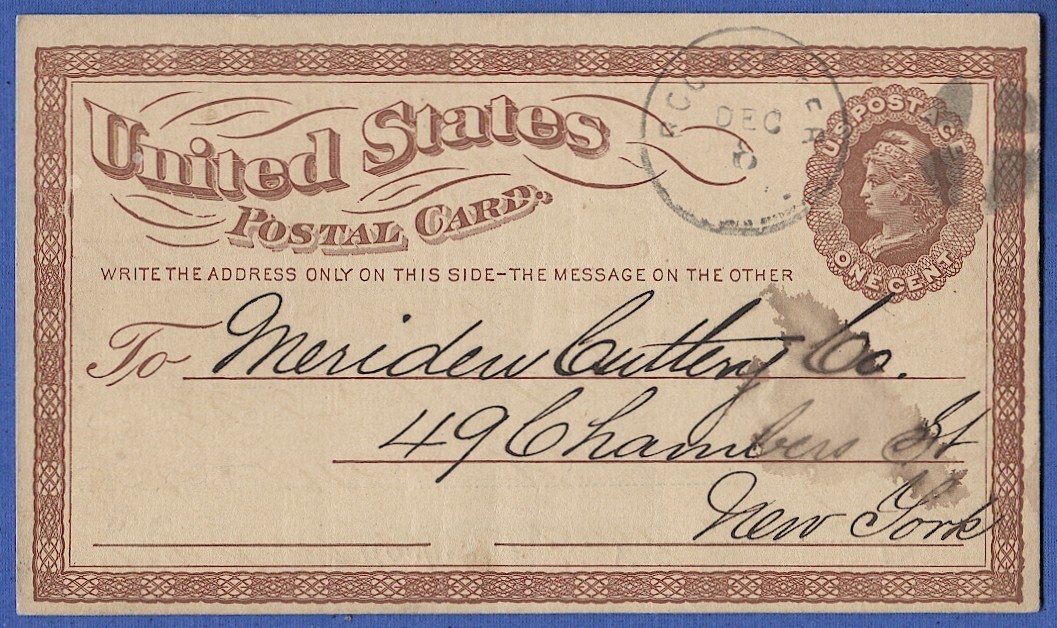 United States
POSTAL CARD.
DEC
5
U.S. POSTAGE
ONE CENT
WRITE THE ADDRESS ONLY ON THIS SIDE—THE MESSAGE ON THE OTHER
To Meriden Cutlery Co.
49 Chambers St
New York